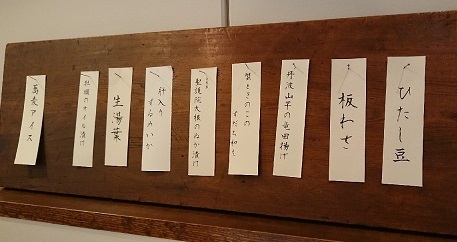 ひたし豆
板わさ
丹波山芋の竜田揚げ
蟹ときのこの
すだち和え
聖護院大根のぬか漬け
肝入り
するめいか
生湯葉
牡蠣のオイル漬け
蕎麦アイス